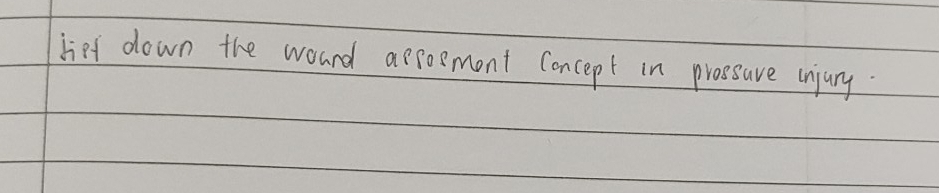 list down the wound assesment concept in pressure injury.